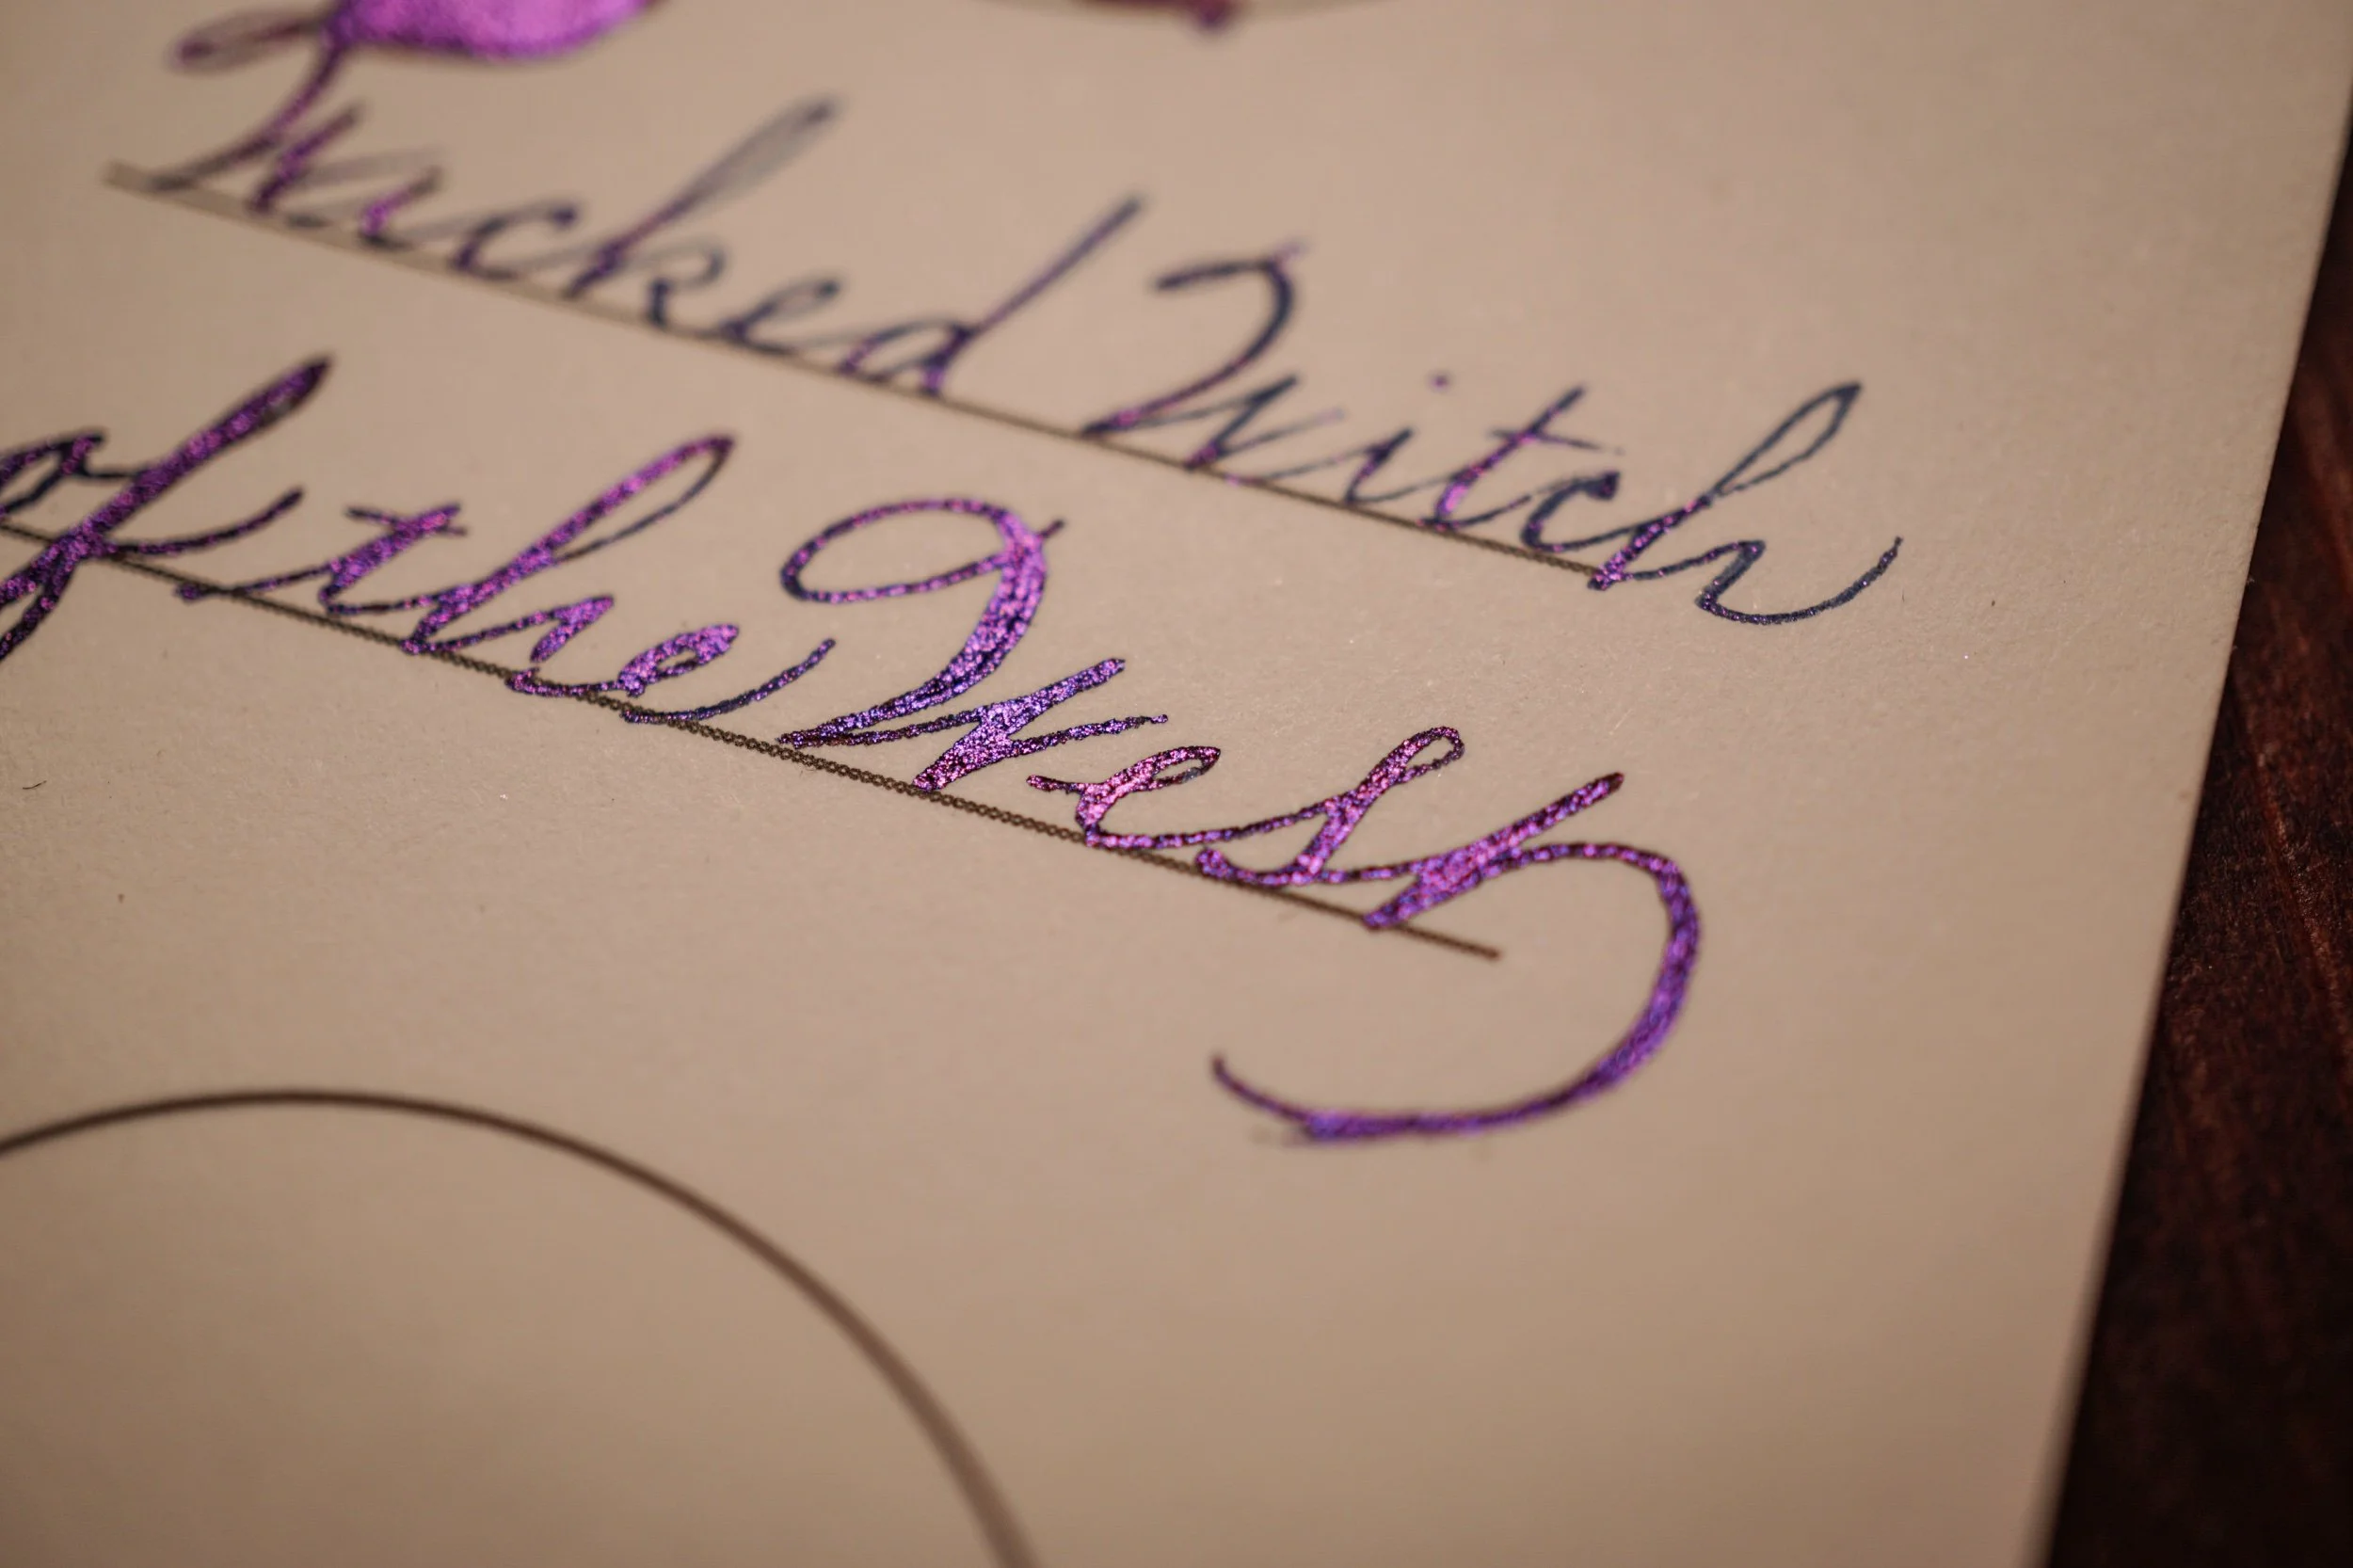 Wicked Witch
of the West